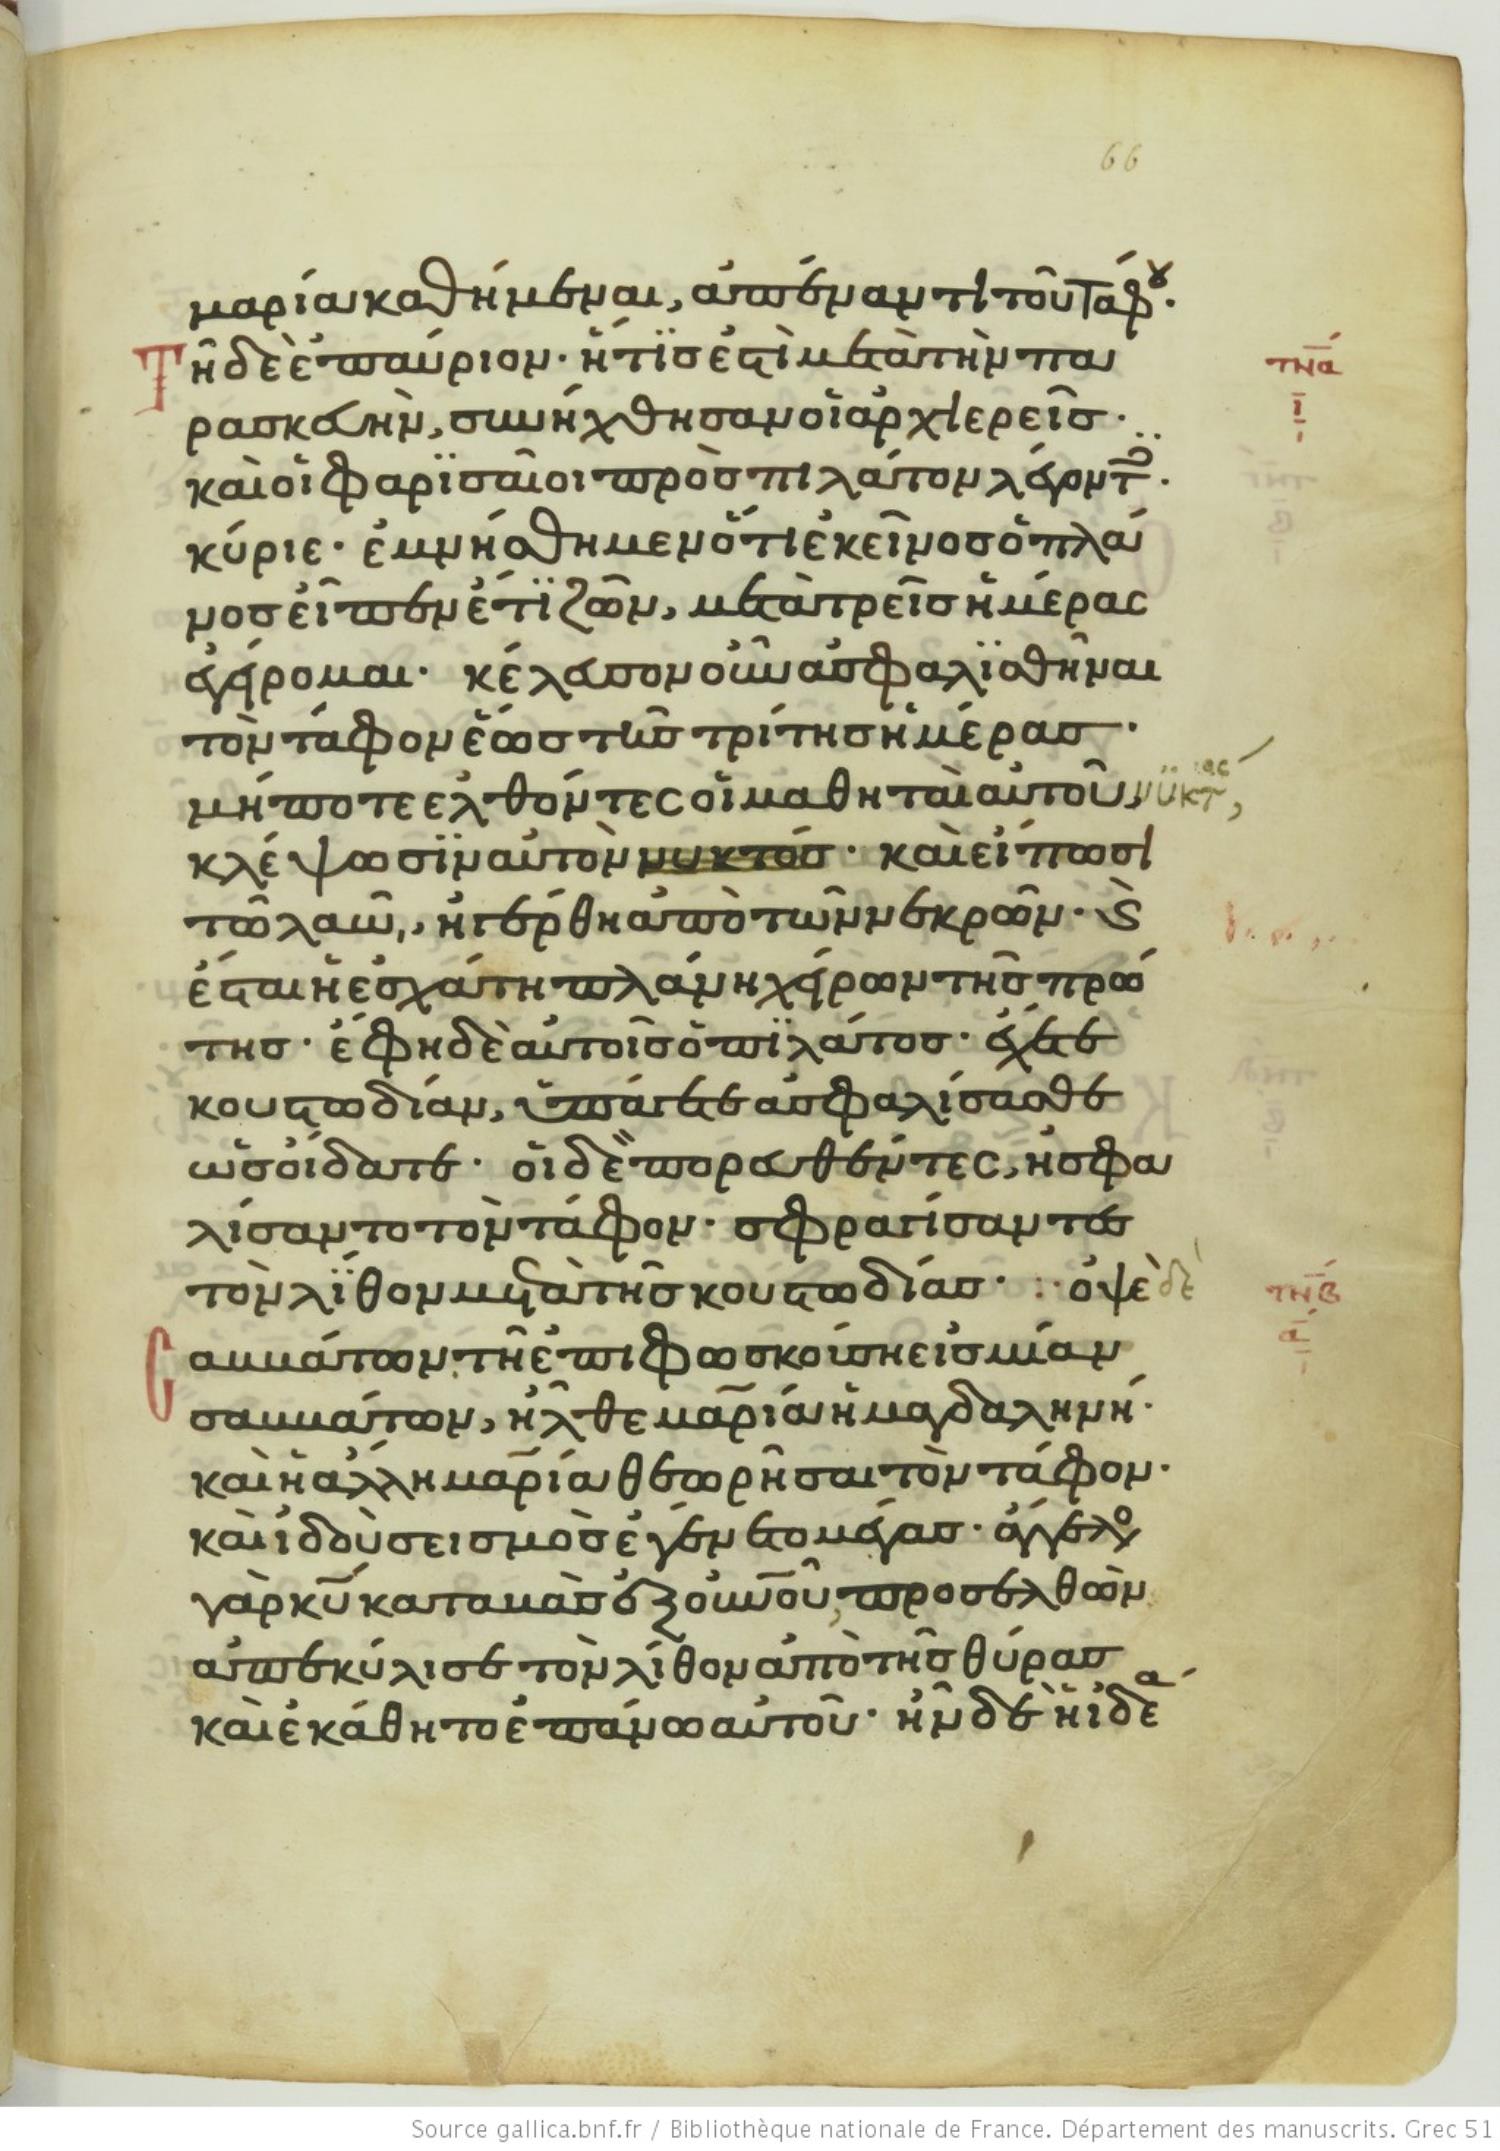 66
μαρία καθήμεναι, ἀπέναντι τοῦ τάφου.
Τῆ δὲ ἐπαύριον· ἥτϊς ἐστὶ μετὰ τὴν πα
ρασκευὴν, συνήχθησαν οἱ ἀρχιερεῖς·
καὶ οἱ φαρϊσαῖοι πρὸς πιλάτον λέγοντ̅.
κύριε· ἐμνήσθημεν ὅτι ἐκεῖνος ὁ πλά
νος εἶπεν ἔτϊ ζῶν, μετὰ τρεῖς ἡμέρας
ἐγείρομαι· κέλευσον οὖν ἀσφαλϊσθῆναι
τὸν τάφον ἕως τῆς τρίτης ἡμέρας·
μήποτε ἐλθόντες οἱ μαθηταὶ αὐτοῦ, νϋκτ,
κλέψωσϊν αὐτὸν νυκτός· καὶ εἴπωσι
τῶ λαῶ, ἠγέρθη ἀπὸ τῶν νεκρῶν· ϗ
ἔσται ἡ ἐσχάτη πλάνη χείρων τῆς πρώ
της· ἔφη δὲ αὐτοῖς ὁ πϊλάτος· ἔχετε
κουστωδίαν, ὑπάγετε ἀσφαλίσασθε
ὡς οἴδατε· οἱ δὲ πορευθέντες, ἠσφα
λίσαντο τὸν τάφον· σφραγίσαντες
τὸν λϊθον μετὰ τῆς κουστωδίας· ὀψὲ δὲ
Σαββάτων, τῆ ἐπιφωσκούση εἰς μίαν
σαββάτων, ἦλθε μαρία ἡ μαγδαληνή·
καὶ ἡ ἄλλη μαρία θεωρῆσαι τὸν τάφον·
καὶ ἰδοὺ σεισμὸς ἐγένετο μέγας· ἄγγελο
γὰρ κυ̅ καταβὰς ἐξ οὐνοῦ, προσελθὼν
ἀπεκύλισε τὸν λίθον ἀπὸ τῆς θύρας
καὶ ἐκάθητο ἐπάνω αὐτοῦ· ἦν δὲ ἡ ἰδέα
τη α
ι
τη β
α
Source gallica.bnf.fr / Bibliothèque nationale de France. Département des manuscrits. Grec 51